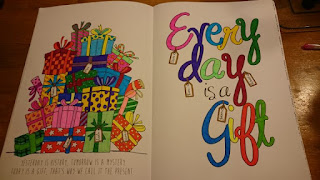 YESTERDAY IS HISTORY, TOMORROW IS A MYSTERY
TODAY IS A GIFT, THAT'S WHY WE CALL IT THE PRESENT
Every
day
is a
Gift